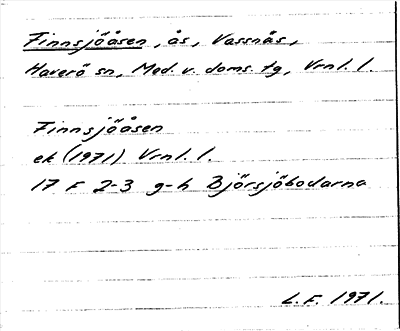 Finnsjöåsen, ås, Vassnäs,
Haverö sn, Med. v. doms. tg, Vrnl. l.
Finnsjöåsen
ek (1971) Vrnl. l.
17 F 2-3 g-h Björsjöbodarna
L.F. 1971.